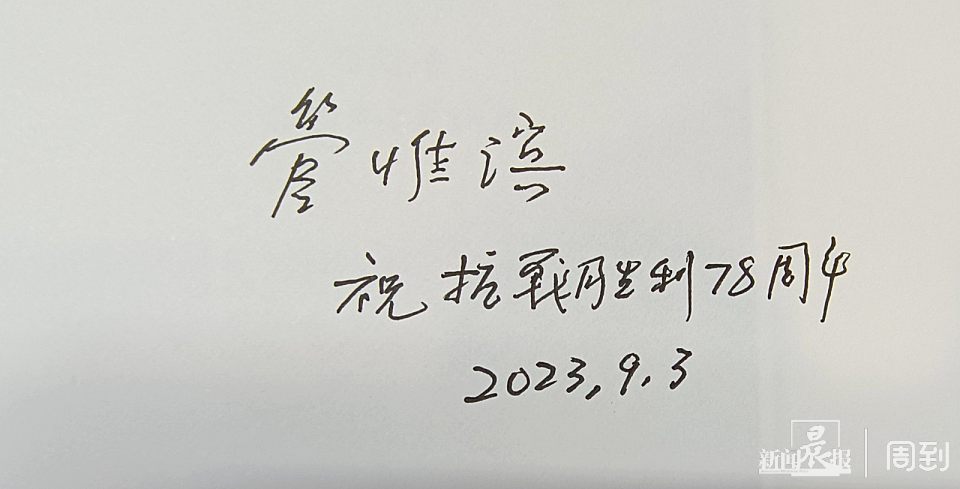 管惟滨
祝抗戰胜利78周年
2023.9.3
新闻晨报 周到